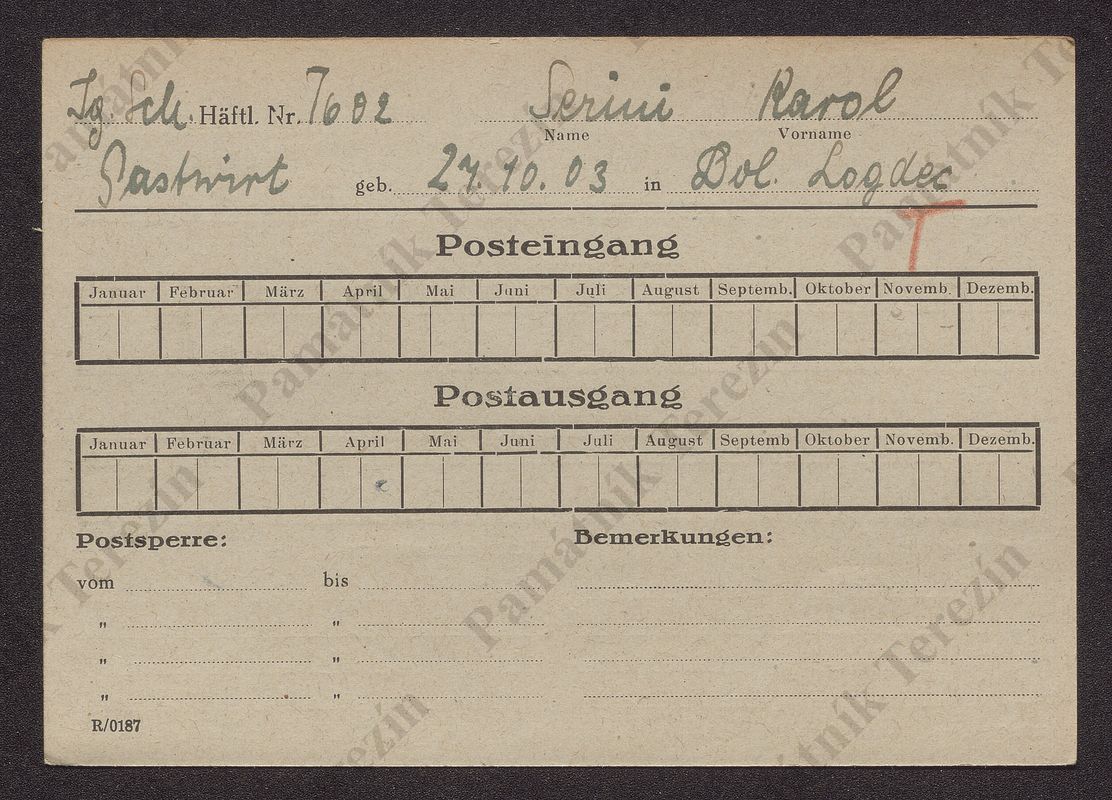 Ig. Sch. Häftl. Nr. 7602 Serini Karol
Name Vorname
Gastwirt geb. 27. 10. 03 in Dol. Logdec
T
Posteingang
Januar Februar März April Mai Juni Juli August Septemb. Oktober Novemb. Dezemb.
Postausgang
Januar Februar März April Mai Juni Juli August Septemb Oktober Novemb. Dezemb.
Postsperre: Bemerkungen:
vom bis
" "
" "
" "
R/0187
Památník Terezín